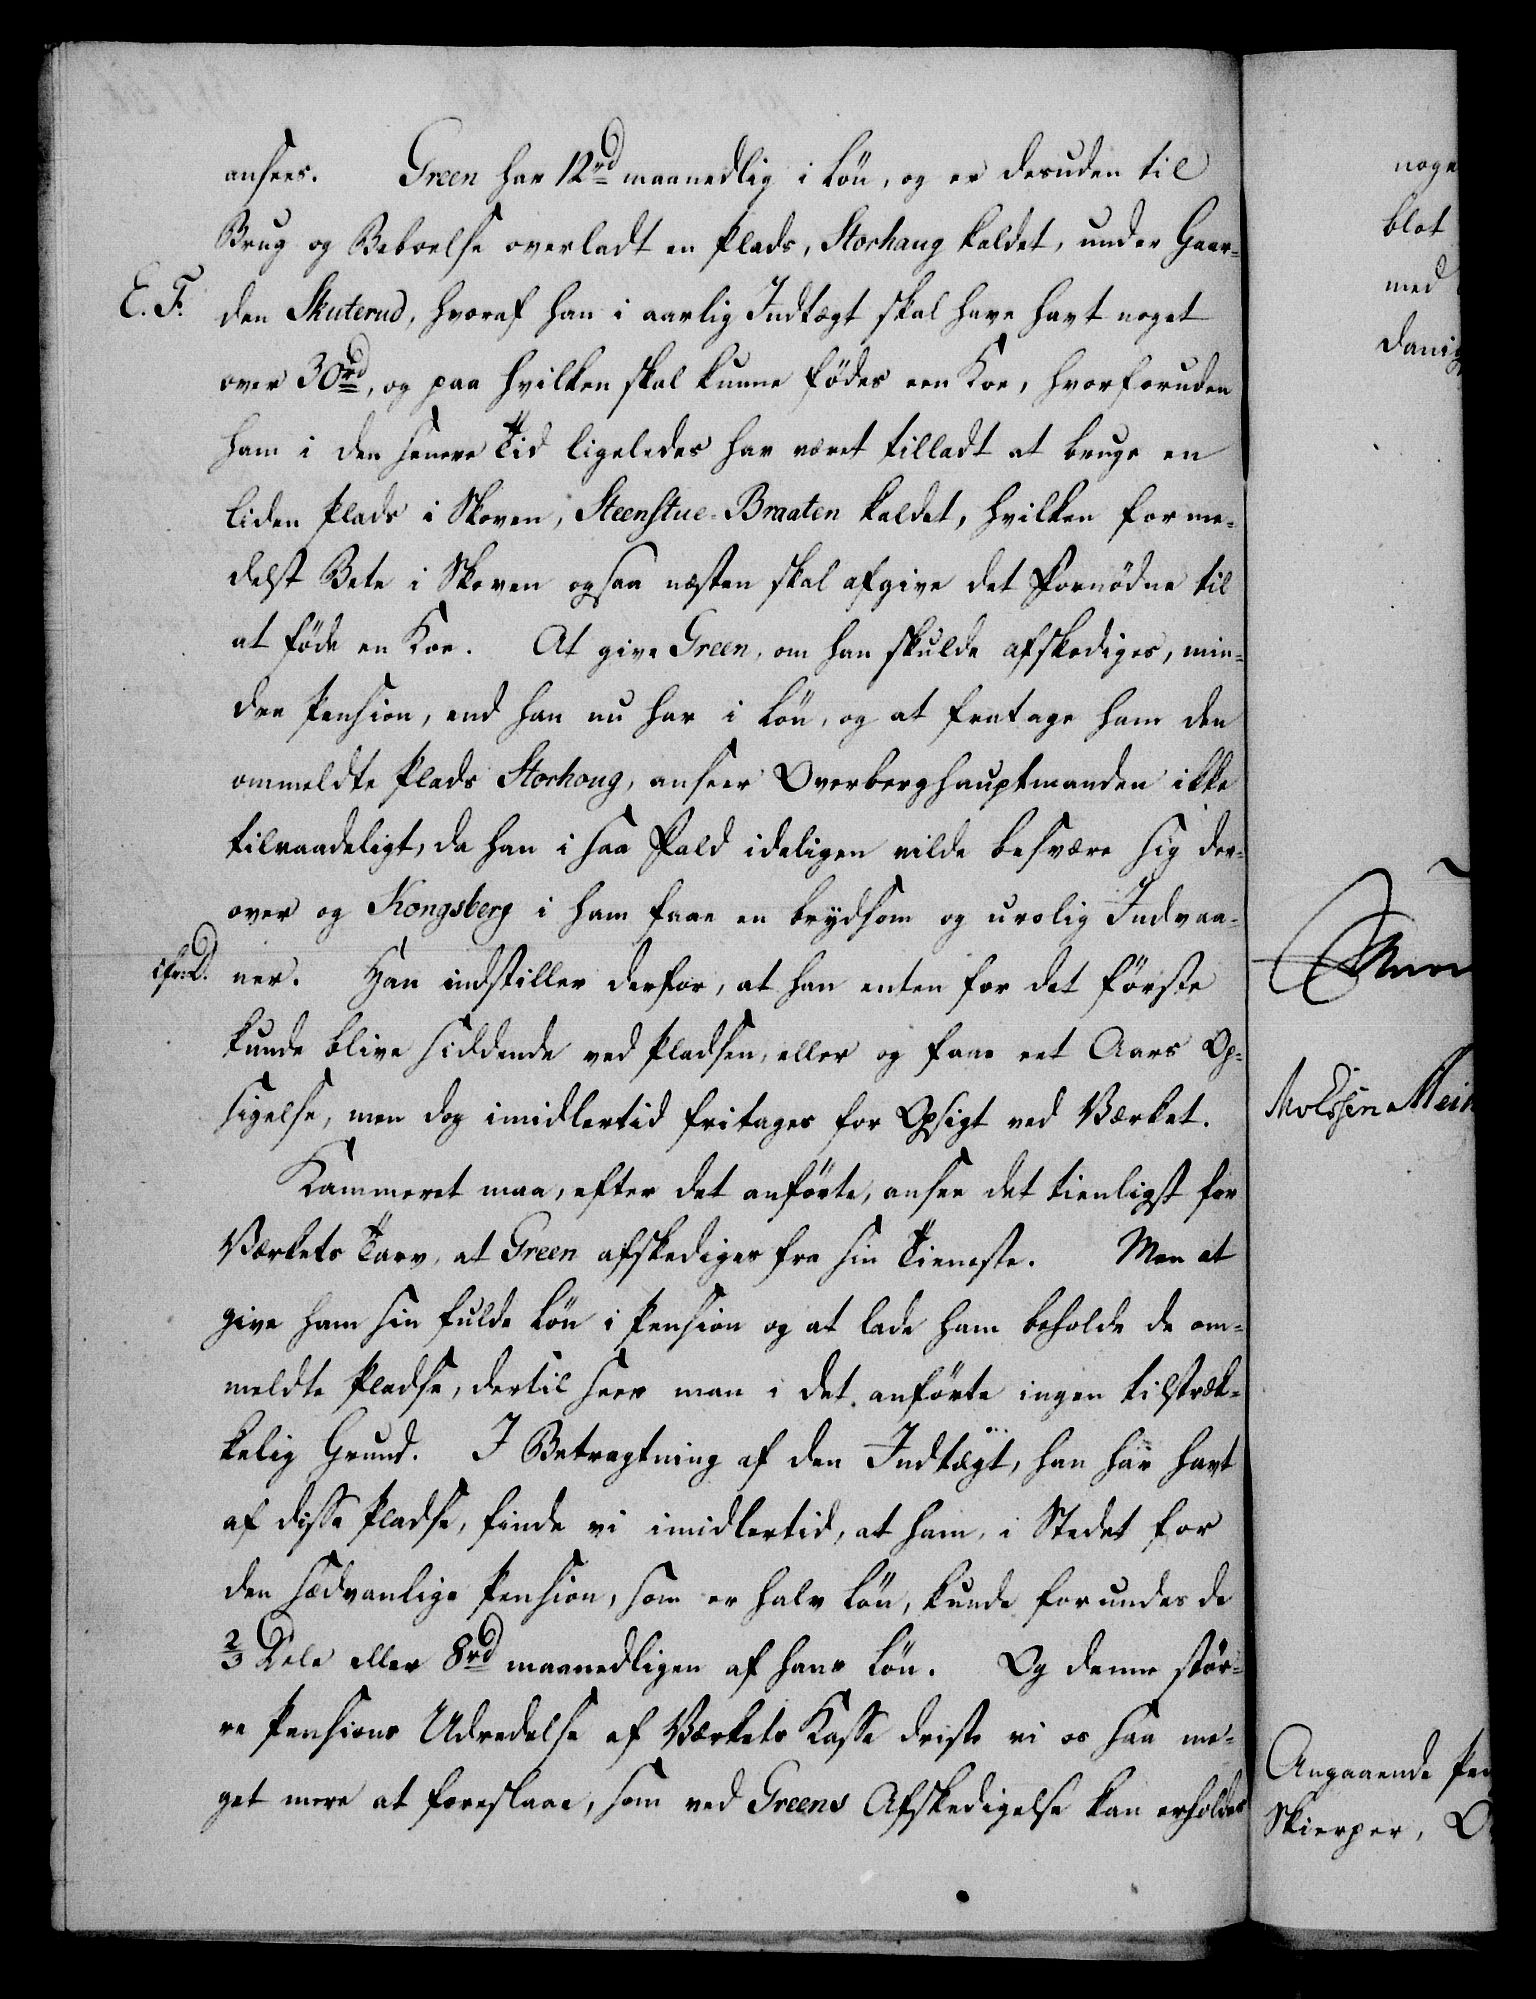 ansees. Green har 12rd maanedlig i Løn, og er desuden til
Brug og Beboelse overladt en Plads, Storhaug kaldet, under Gaar-
E. F. den Skuterud, hvoraf han i aarlig Indtægt skal have havt noget
over 30rd, og paa hvilken skal kunne fødes een Koe, hvorforuden
ham i den senere Tid ligeledes har været tilladt at bruge en
liden Plads i Skoven, Steenstue-Braaten kaldet, hvilken forme-
delst Bete i Skoven ogsaa næsten skal afgive det Fornødne til
at føde en Koe. At give Green, om han skulde afskediges, min-
dre Pension, end han nu har i Løn, og at fratage ham den
ommeldte Plads Storhoug, anseer Overberghauptmanden ikke
tilraadeligt, da han i saa Fald ideligen vilde besvære sig der-
over og Kongsberg i ham faae en brydsom og urolig Indvaa-
ner. Han indstiller derfor, at han enten for det første
kunde blive siddende ved Pladsen, eller og faae eet Aars Op-
sigelse, men dog imidlertid fritages for Opsigt ved Værket.
Kammeret maa, efter det anførte, ansee det tienligst for
Værkets Tarv, at Green afskediges fra sin Tieneste. Men at
give ham sin fulde Løn i Pension og at lade ham beholde de om-
meldte Pladse, dertil seer man i det anførte ingen tilstræk-
kelig Grund. I Betragtning af den Indtægt, han har havt
af disse Pladse, finde vi imidlertid, at ham, i Stedet for
den sædvanlige Pension, som er halv Løn, kunde forundes de
2/3 Dele eller 8rd maanedligen af hans Løn. Og denne stør-
re Pensions Udredelse af Værkets Kasse driste vi os saa me-
get mere at foreslaae, som ved Greens Afskedigelse kan erholdes
noge
blot
med
Dani
Angaaende Pen
Skierper, O